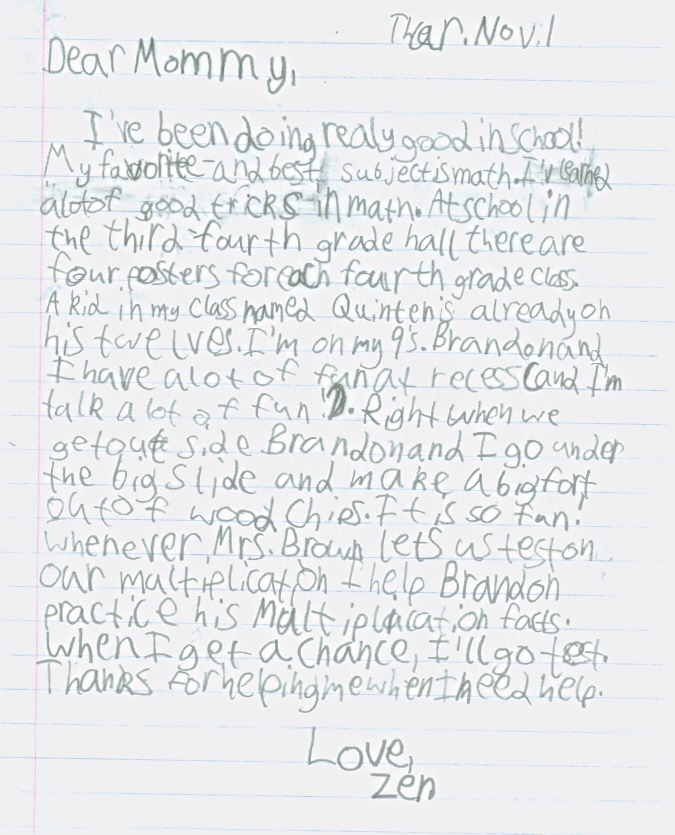 Thar. Nov. 1
Dear Mommy,
I've been doing realy good in school!
My favorite and best subject is math. I'v learned
alot of good tricks in math. At school in
the third-fourth grade hall there are
four posters for each fourth grade class.
A kid in my class named Quinten is already on
his twelves. I'm on my 9's. Brandon and
I have a lot of fun at recess (and I'm
talk a lot of fun!). Right when we
get out side Brandon and I go under
the big slide and make a big fort
out of wood chips. It is so fun!
whenever Mrs. Brown lets us test on
our multiplication I help Brandon
practice his Multiplacation facts.
When I get a chance, I'll go test.
Thanks for helping me when I need help.
Love,
Zen